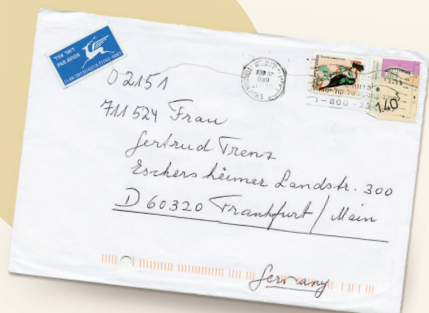 PAR AVION
02151
711524 Frau
Gertrud Trenz
Eschersheimer Landstr. 300
D 60320 Frankfurt / Main
Germany
1-800-
1.40